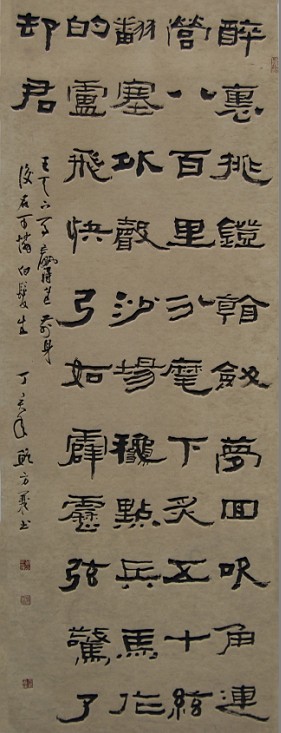 醉裏挑鐙看劔夢回吹角連
營八百里分麾下炙五十絃
翻塞外聲沙場龝點兵馬作
的盧飛快弓如霹靂弦驚了
却君
王天下事贏得生前身
後名可憐白髮生 丁亥年